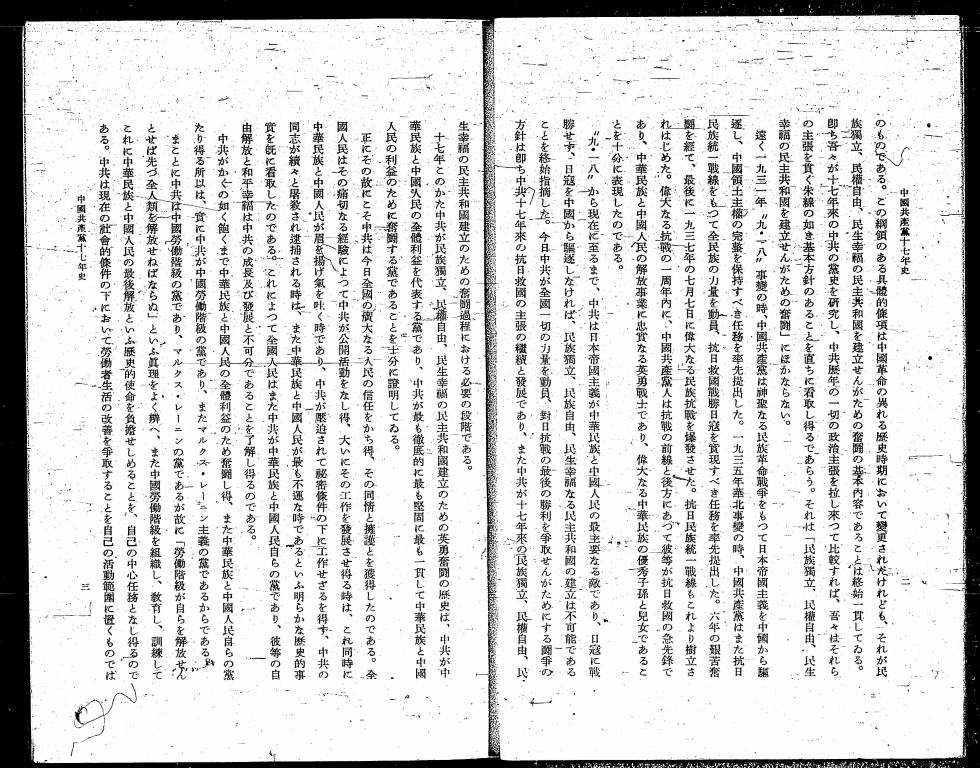 中國共產黨十七年史
二
のものである。この綱領のある具體的條項は中國革命の異れる歷史時期において變更されたけれども、それが民
族獨立、民權自由、民生幸福の民主共和國を建立せんがための奮鬪の基本內容であることは終始一貫してゐる。
卽ち吾々が十七年來の中共の黨史を硏究し、中共歷年の一切の政治主張を拉し來つて比較すれば、吾々はそれら
の主張を貫く朱線の如き基本方針のあることを直ちに看取し得るであらう。それは「民族獨立、民權自由、民生
幸福の民主共和國を建立せんがための奮鬪」にほかならない。
遠く一九三一年〝九・一八〟事變の時、中國共產黨は神聖なる民族革命戰爭をもつて日本帝國主義を中國から驅
逐し、中國領土主權の完整を保持すべき任務を率先提出した。一九三五年華北事變の時、中國共產黨はまた抗日
民族統一戰線をもつて全民族の力量を動員、抗日救國戰勝日寇を實現すべき任務を率先提出した。六年の艱苦奮
鬪を經て、最後に一九三七年の七月七日に偉大なる民族抗戰を爆發させた。抗日民族統一戰線もこれより樹立さ
れはじめた。偉大なる抗戰の一周年內に、中國共產黨人は抗戰の前線と後方にあつて彼等が抗日救國の急先鋒で
あり、中華民族と中國人民の解放事業に忠實なる英勇戰士であり、偉大なる中華民族の優秀子孫と兒女であるこ
とを十分に表現したのである。
〝九・一八〟から現在に至るまで、中共は日本帝國主義が中華民族と中國人民の最主要なる敵であり、日寇に戰
勝せず、日寇を中國から驅逐しなければ、民族獨立、民族自由、民生幸福なる民主共和國の建立は不可能である
ことを終始指摘した。今日中共が全國一切の力量を動員、對日抗戰の最後の勝利を爭取せんがためにする鬪爭の
方針は卽ち中共十七年來の抗日救國の主張の繼續と發展であり、また中共が十七年來の民族獨立、民權自由、民
生幸福の民主共和國建立のための奮鬪過程における必要の段階である。
十七年このかた中共が民族獨立、民權自由、民生幸福の民主共和國建立のための英勇奮鬪の歷史は、中共が中
華民族と中國人民の全體利益を代表する黨であり、中共が最も徹底的に最も堅固に最も一貫して中華民族と中國
人民の利益のために奮鬪する黨であることを十分に證明してゐる。
正にその故にこそ中共は今日全國の廣大なる人民の信任をかち得、その同情と擁護とを獲得したのである。全
國人民はその痛切なる經驗によつて中共が公開活動をなし得、大いにその工作を發展させ得る時は、これ同時に
中華民族と中國人民が眉を揚げ氣を吐く時であり、中共が壓迫されて祕密條件の下に工作せざるを得ず、中共の
同志が續々と屠殺され逮捕される時は、また中華民族と中國人民が最も不運な時であるといふ明らかな歷史的事
實を旣に看取したのである。これによつて全國人民はまた中共が中華民族と中國人民自らの黨であり、彼等の自
由解放と和平幸福は中共の成長及び發展と不可分であることを了解し得るのである。
中共がかくの如く飽くまで中華民族と中國人民の全體利益のため奮鬪し得、また中華民族と中國人民自らの黨
たり得る所以は、實に中共が中國勞働階級の黨であり、またマルクス・レーニン主義の黨であるからである。
まことに中共は中國勞働階級の黨であり、マルクス・レーニンの黨であるが故に「勞働階級が自らを解放せん
とせば先づ全人類を解放せねばならぬ」といふ眞理をよく辨へ、また中國勞働階級を組織し、敎育し、訓練して
これに中華民族と中國人民の最後解放といふ歷史的使命を負擔せしめることを、自己の中心任務となし得るので
ある。中共は現在の社會的條件の下において勞働者生活の改善を爭取することを自己の活動範圍に置くものでは
中國共產黨十七年史
三